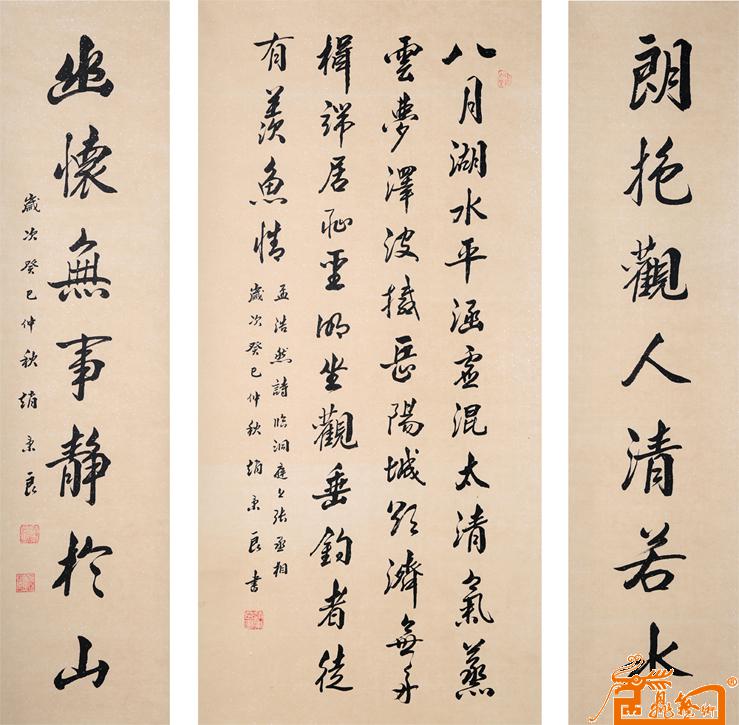 朗抱觀人清若水
八月湖水平涵虛混太清氣蒸
雲夢澤波撼岳陽城欲濟無舟
楫端居恥聖明坐觀垂釣者徒
有羨魚情
孟浩然詩臨洞庭上張丞相
歲次癸巳仲秋趙京良書
幽懷無事靜於山
歲次癸巳仲秋趙京良